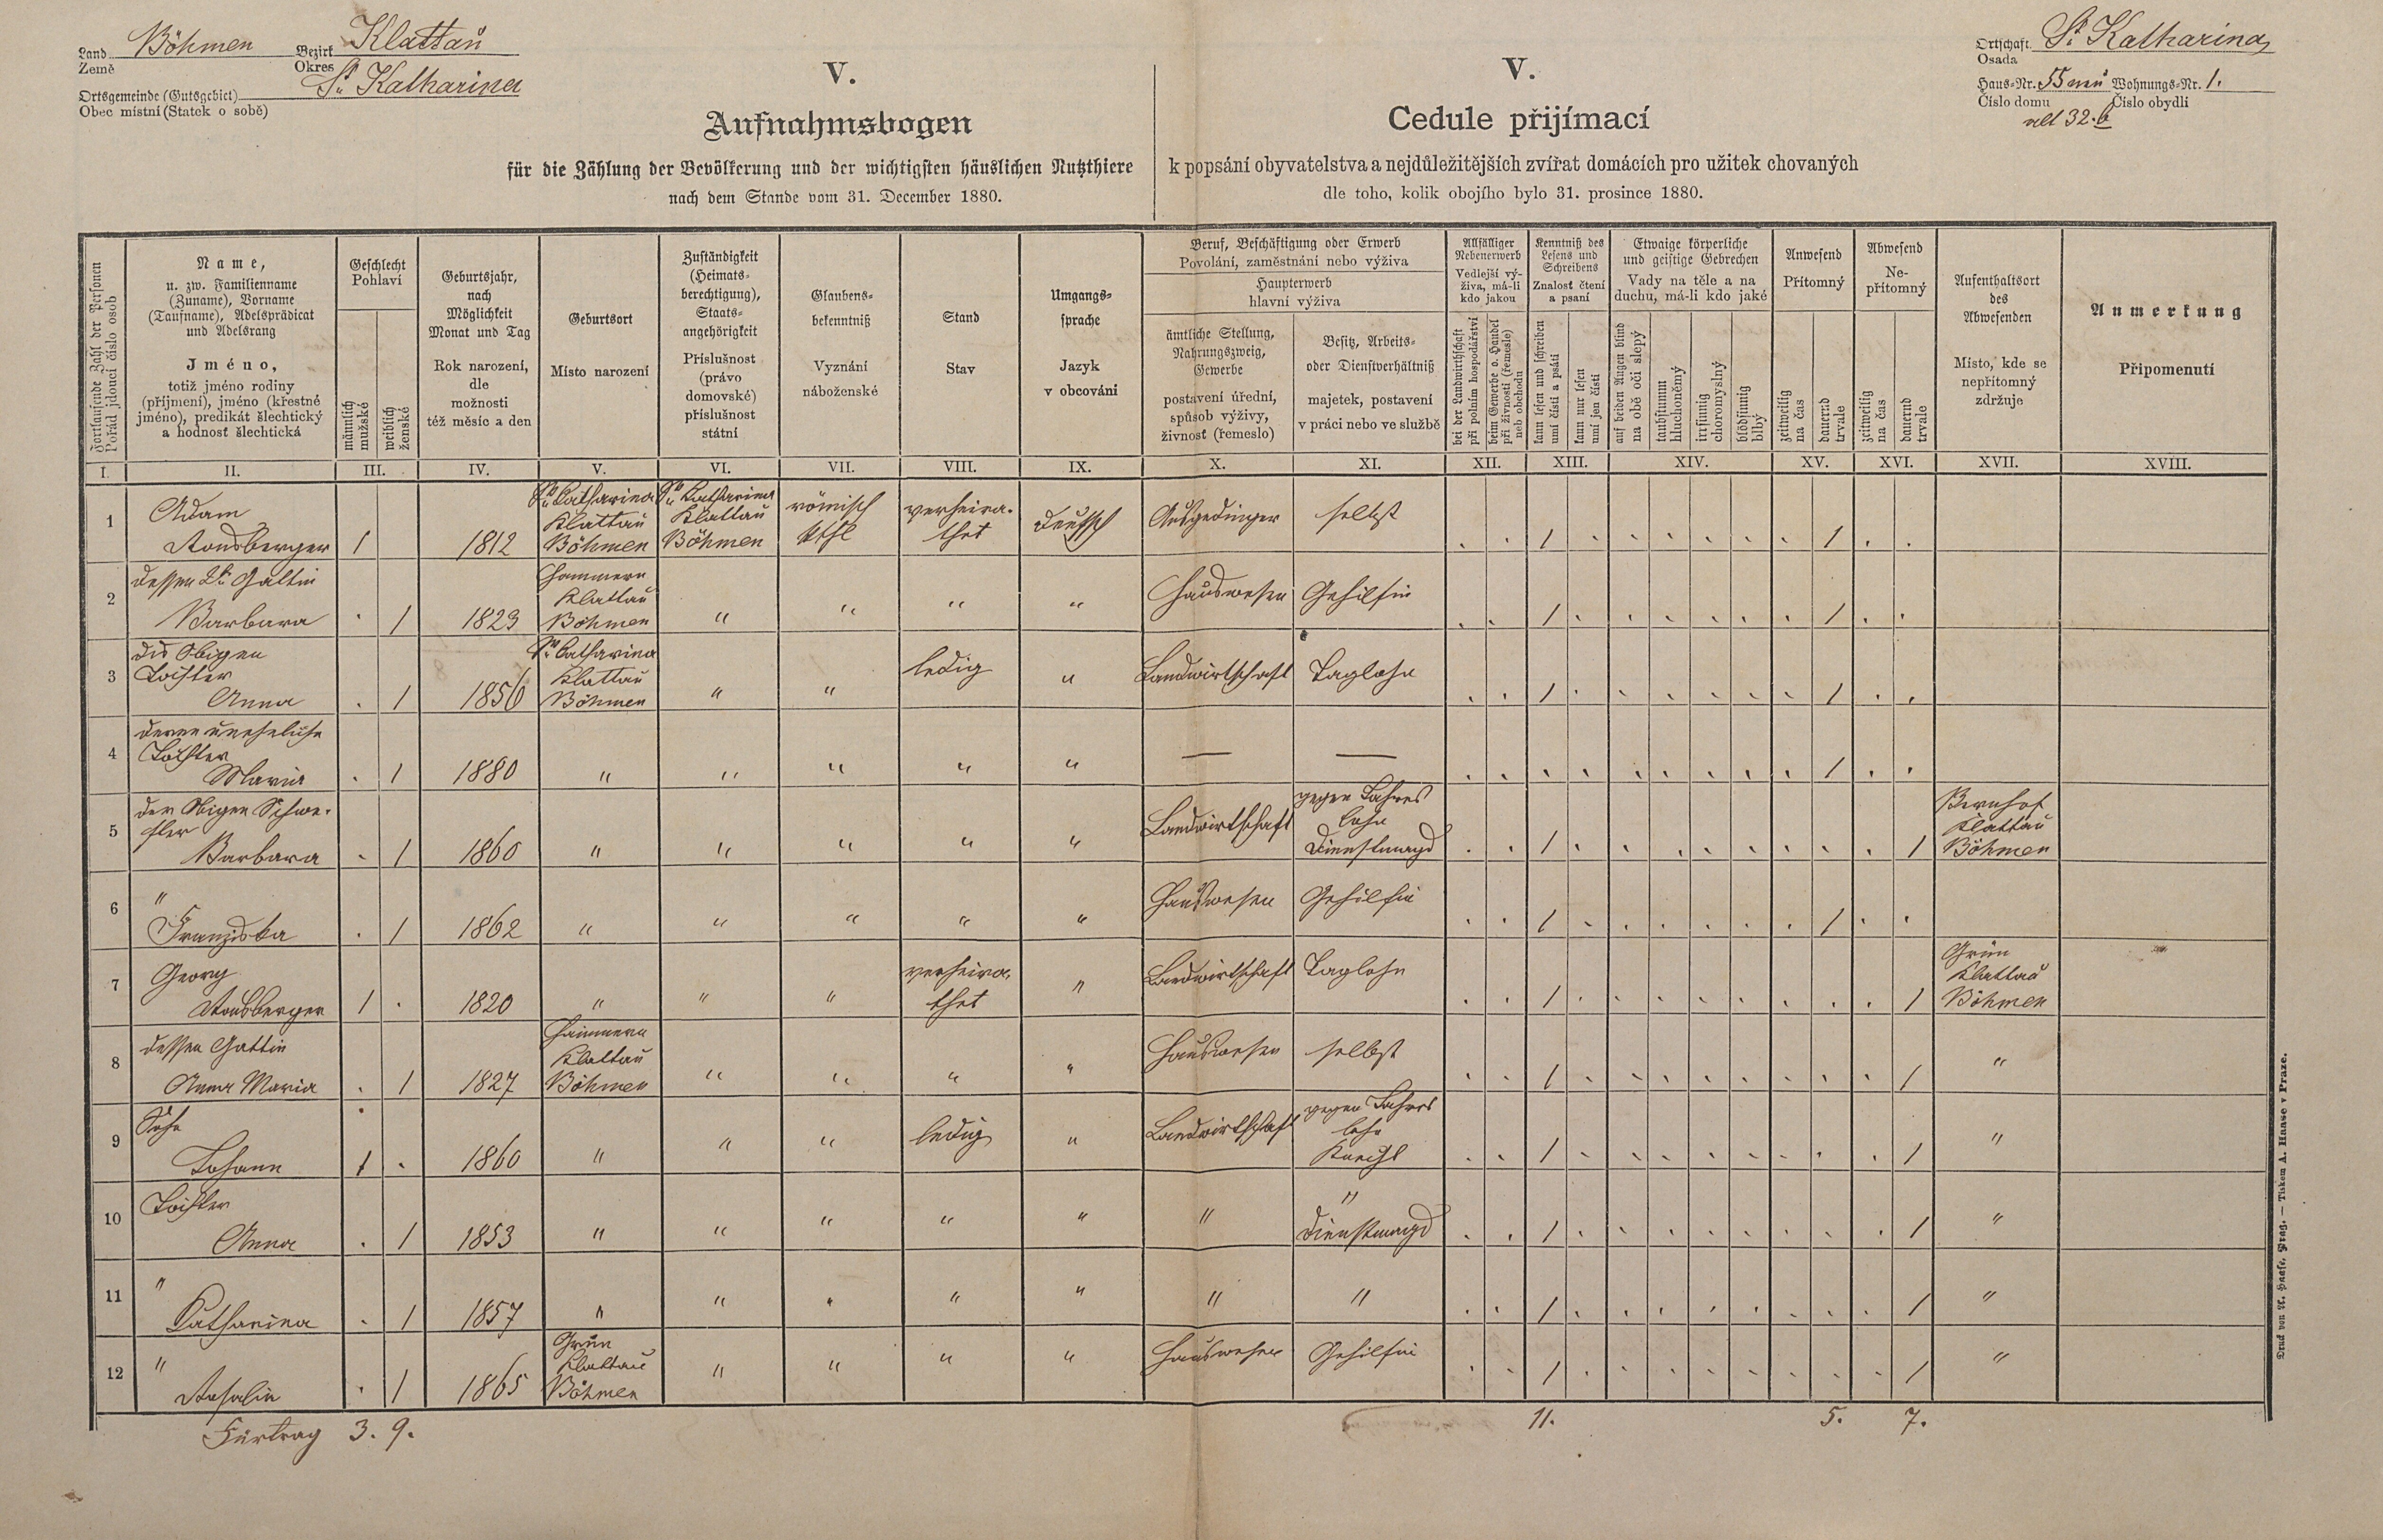 Land Böhmen Bezirk Klattau
Země Okres
Ortsgemeinde (Gutsgebiet) St. Katharina
Obec místní (Statek o sobě)
V.
Aufnahmsbogen
für die Zählung der Bevölkerung und der wichtigsten häuslichen Nutzthiere
nach dem Stande vom 31. December 1880.
V.
Cedule přijímací
k popsání obyvatelstva a nejdůležitějších zvířat domácích pro užitek chovaných
dle toho, kolik obojího bylo 31. prosince 1880.
Ortschaft St. Katharina
Osada
Haus-Nr. 55 neu Wohnungs-Nr. 1.
Číslo domu Číslo obydlí
alt 32. b
Fortlaufende Zahl der Personen
Pořád jdoucí číslo osob
Name,
u. zw. Familienname
(Zuname), Vorname
(Taufname), Adelsprädicat
und Adelsrang
Jméno,
totiž jméno rodiny
(příjmení), jméno (křestné
jméno), predikát šlechtický
a hodnosť šlechtická
Geschlecht
Pohlaví
männlich
mužské
weiblich
ženské
Geburtsjahr,
nach
Möglichkeit
Monat und Tag
Rok narození,
dle
možnosti
též měsíc a den
Geburtsort
Místo narození
Zuständigkeit
(Heimats-
berechtigung),
Staats-
angehörigkeit
Příslušnost
(právo
domovské)
příslušnost
státní
Glaubens-
bekenntniß
Vyznání
náboženské
Stand
Stav
Umgangs-
sprache
Jazyk
v obcování
Beruf, Beschäftigung oder Erwerb
Povolání, zaměstnání nebo výživa
Haupterwerb
hlavní výživa
ämtliche Stellung,
Nahrungszweig,
Gewerbe
postavení úřední,
spůsob výživy,
živnosť (řemeslo)
Besitz, Arbeits-
oder Dienstverhältniß
majetek, postavení
v práci nebo ve službě
Allfälliger
Nebenerwerb
Vedlejší vý-
živa, má-li
kdo jakou
bei der Landwirthschaft
při polním hospodářství
beim Gewerbe o. Handel
při živnosti (řemesle)
neb obchodu
Kenntniß des
Lesens und
Schreibens
Znalosť čtení
a psaní
kann lesen und schreiben
umí čísti a psáti
kann nur lesen
umí jen čísti
Etwaige körperliche
und geistige Gebrechen
Vady na těle a na
duchu, má-li kdo jaké
auf beiden Augen blind
na obě oči slepý
taubstumm
hluchoněmý
irrsinnig
choromyslný
blödsinnig
blbý
Anwesend
Přítomný
zeitweilig
na čas
dauernd
trvale
Abwesend
Ne-
přítomný
zeitweilig
na čas
dauernd
trvale
Aufenthaltsort
des
Abwesenden
Místo, kde se
nepřítomný
zdržuje
Anmerkung
Připomenutí
I. II. III. IV. V. VI. VII. VIII. IX. X. XI. XII. XIII. XIV. XV. XVI. XVII. XVIII.
1 Adam Ronsberger 1 1812 St. Katharina Klattau Böhmen St. Katharina Klattau Böhmen römisch kthl verheirathet deutsch Ausgedinger selbst . . 1 . . . . . . 1 . .
2 dessen Gattin Barbara . 1 1823 Hammern Klattau Böhmen " " " " Hauswesen Gehilfin . . 1 . . . . . . 1 . .
3 des Obigen Tochter Anna . 1 1856 St. Katharina Klattau Böhmen " " ledig " Landwirtschaft Taglohn . . 1 . . . . . . 1 . .
4 deren uneheliche Tochter Maria . 1 1880 " " " " " — — . . . . . . . . . 1 . .
5 der Obigen Schwester Barbara . 1 1860 " " " " " Landwirtschaft gegen Jahreslohn Dienstmagd . . 1 . . . . . . . . 1 Klattau Böhmen
6 " Franziska . 1 1862 " " " " " Hauswesen Gehilfin . . 1 . . . . . . 1 . .
7 Georg Ronsberger 1 . 1820 " " " verheirathet " Landwirtschaft Taglohn . . 1 . . . . . . . . 1 Grün Klattau Böhmen
8 dessen Gattin Anna Maria . 1 1827 Hammern Klattau Böhmen " " " " Hauswesen selbst . . 1 . . . . . . . . 1 "
9 Sohn Johann 1 . 1860 " " " ledig " Landwirtschaft gegen Jahreslohn Knecht . . 1 . . . . . . . . 1 "
10 Tochter Anna . 1 1853 " " " " " " " Dienstmagd . . 1 . . . . . . . . 1 "
11 " Katharina . 1 1857 " " " " " " " . . 1 . . . . . . . . 1 "
12 " Rosalia . 1 1865 Grün Klattau Böhmen " " " " Hauswesen Gehilfin . . 1 . . . . . . . . 1 "
Fürtrag 3. 9. 11. 5. 7.
Druck von A. Haase, Prag. — Tiskem A. Haase v Praze.